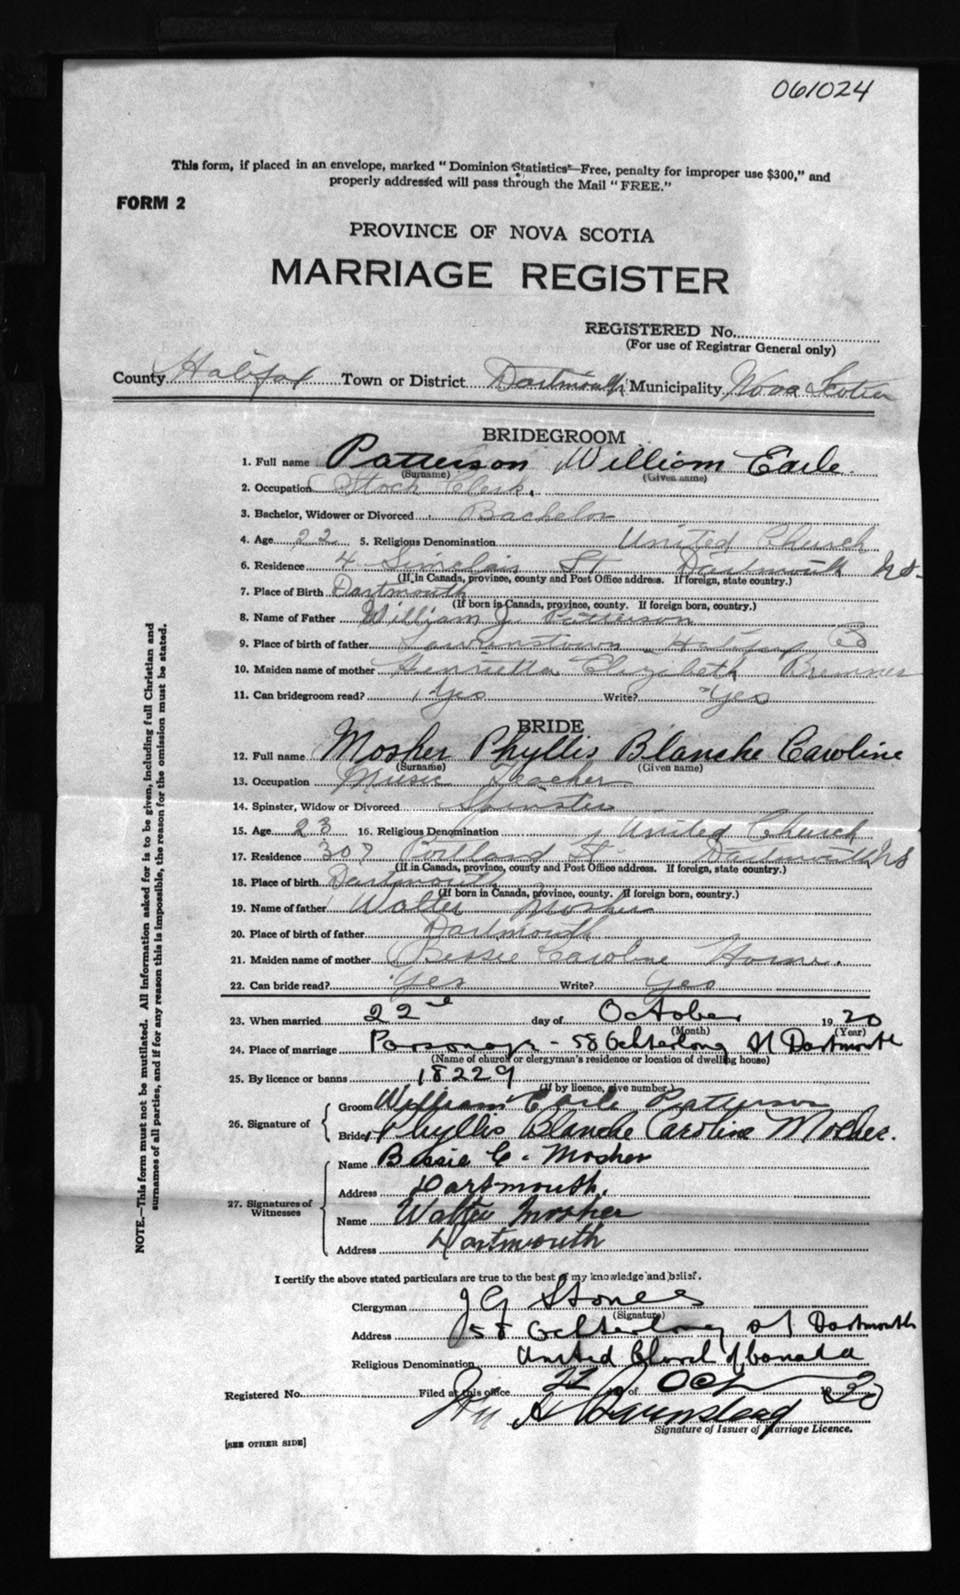 061024
This form, if placed in an envelope, marked "Dominion Statistics—Free, penalty for improper use $300," and
properly addressed will pass through the Mail "FREE."
FORM 2
PROVINCE OF NOVA SCOTIA
MARRIAGE REGISTER
REGISTERED No.
(For use of Registrar General only)
County Halifax Town or District Dartmouth Municipality Nova Scotia
BRIDEGROOM
1. Full name Patterson William Earle.
(Surname) (Given name)
2. Occupation Stock Clerk.
3. Bachelor, Widower or Divorced Bachelor
4. Age 22 5. Religious Denomination United Church
6. Residence 4 Sinclair St Dartmouth NS.
(If in Canada, province, county and Post Office address. If foreign, state country.)
7. Place of Birth Dartmouth
(If born in Canada, province, county. If foreign born, country.)
8. Name of Father William J. Patterson
9. Place of birth of father Lawrencetown Halifax Co
10. Maiden name of mother Henrietta Elizabeth Bremner
11. Can bridegroom read? Yes Write? Yes
BRIDE
12. Full name Mosher Phyllis Blanche Caroline
(Surname) (Given name)
13. Occupation Music Teacher
14. Spinster, Widow or Divorced Spinster
15. Age 23 16. Religious Denomination United Church
17. Residence 307 Portland St. Dartmouth NS
(If in Canada, province, county and Post Office address. If foreign, state country.)
18. Place of birth Dartmouth
(If born in Canada, province, county. If foreign born, country.)
19. Name of father Walter Mosher
20. Place of birth of father Dartmouth
21. Maiden name of mother Bessie Caroline Horne.
22. Can bride read? Yes Write? Yes
23. When married 22nd day of October 1930
(Month) (Year)
24. Place of marriage Parsonage - 58 Ochterlony St Dartmouth
(Name of church or clergyman's residence or location of dwelling house)
25. By licence or banns 18229
(If by licence, give number)
26. Signature of
Groom William Earle Patterson
Bride Phyllis Blanche Caroline Mosher.
27. Signatures of Witnesses
Name Bessie C. Mosher
Address Dartmouth.
Name Walter Mosher
Address Dartmouth
I certify the above stated particulars are true to the best of my knowledge and belief.
Clergyman J G
(Signature)
Address 58 Ochterlony St Dartmouth
Religious Denomination United Church of Canada
Registered No. Filed at this office 22 day of Oct 1930
Signature of Issuer of Marriage Licence.
[SEE OTHER SIDE]
NOTE.—This form must not be mutilated. All information asked for is to be given, including full Christian and
surnames of all parties, and if for any reason this is impossible, the reason for the omission must be stated.